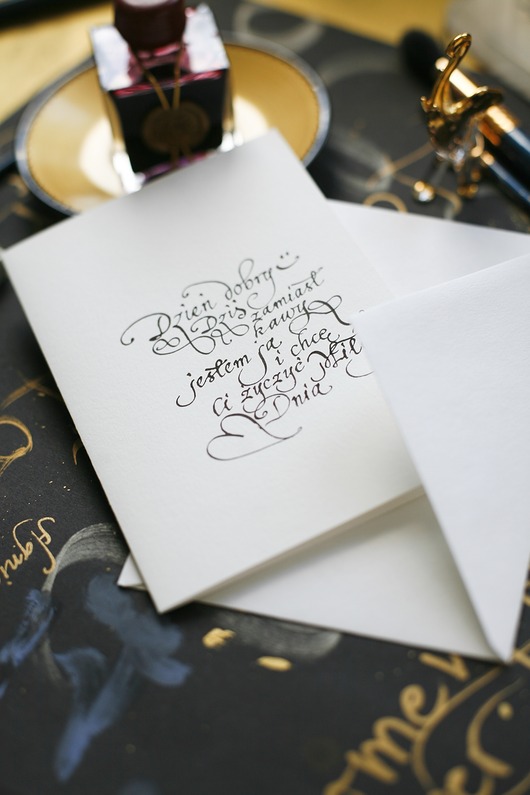 Dzień dobry :)
Dziś zamiast
kawy
jestem ja
i chcę
Ci życzyć Mił
Dnia
Agni
ome